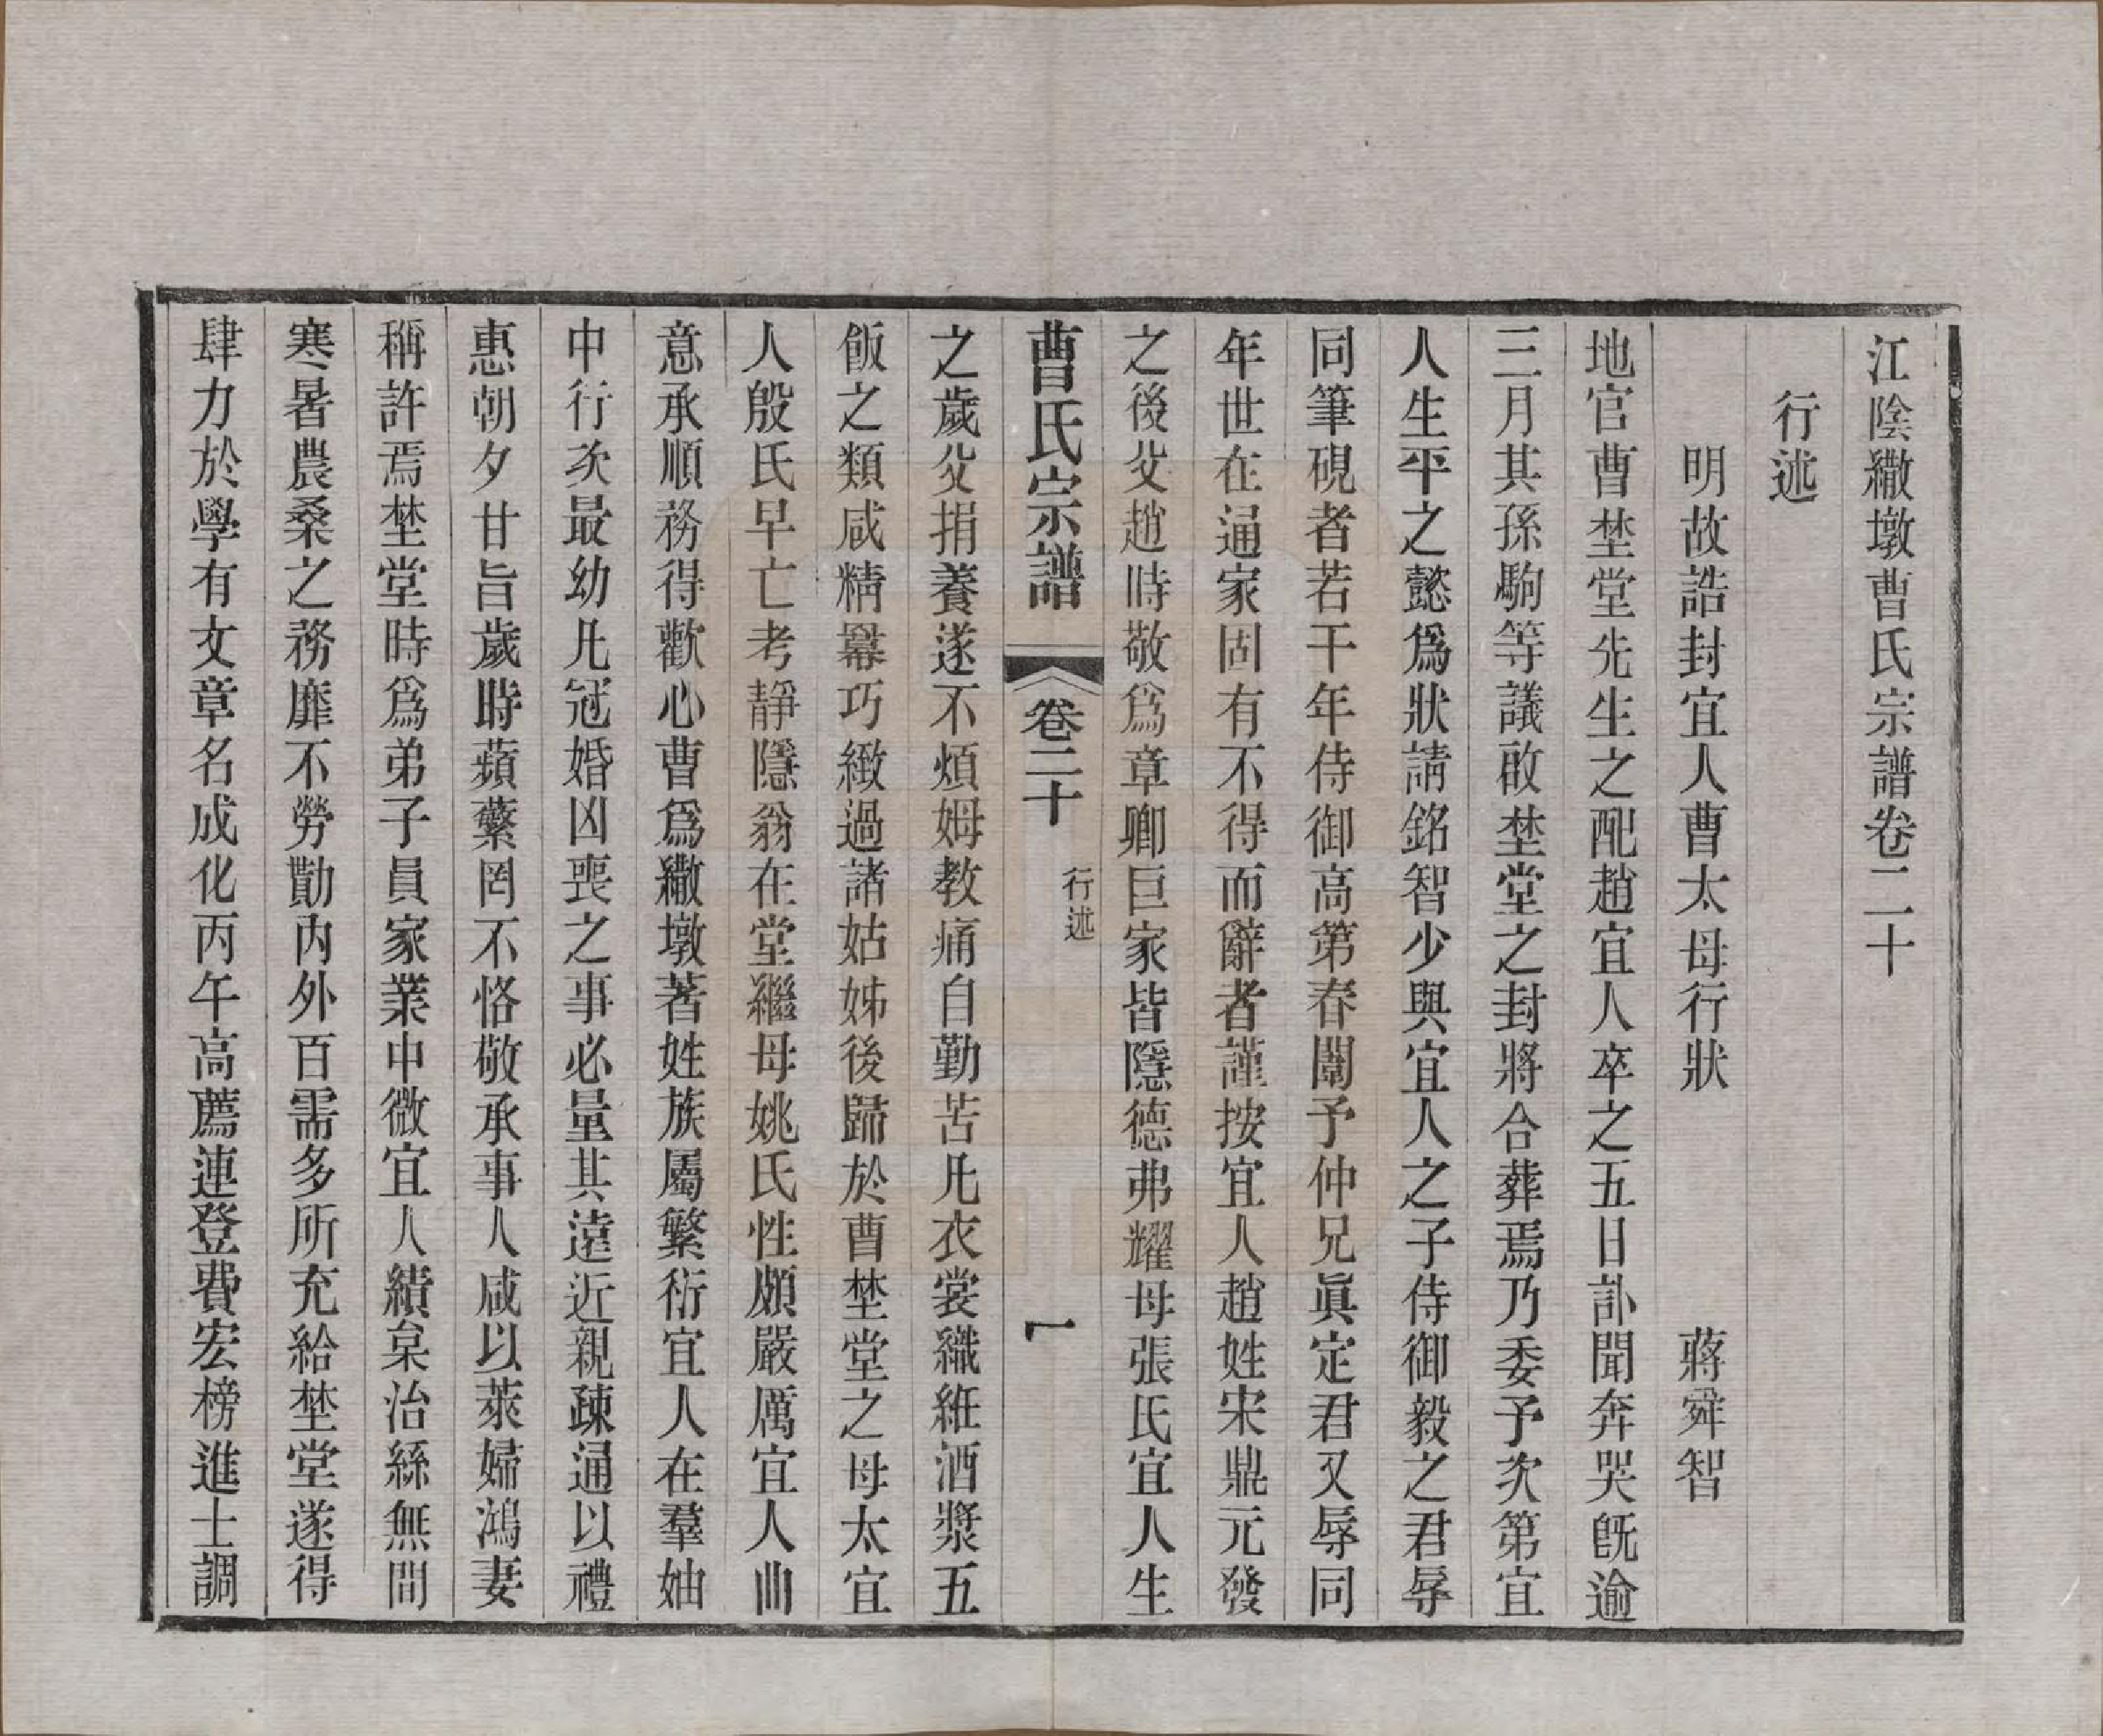 江陰繖墩曹氏宗譜卷二十
行述
明故誥封宜人曹太母行狀　蔣舜智
地官曹埜堂先生之配趙宜人卒之五日訃聞奔哭旣逾
三月其孫駒等議啟埜堂之封將合葬焉乃委予次第宜
人生平之懿爲狀請銘智少與宜人之子侍御毅之君辱
同筆硯者若干年侍御高第春闈予仲兄眞定君又辱同
年世在通家固有不得而辭者謹按宜人趙姓宋鼎元發
之後父趙時敬爲章卿巨家皆隱德弗耀母張氏宜人生
曹氏宗譜　卷二十　行述　一
之歲父捐養遂不煩姆教痛自勤苦凡衣裳織紝酒漿五
飯之類咸精冪巧緻過諸姑姊後歸於曹埜堂之母太宜
人殷氏早亡考靜隱翁在堂繼母姚氏性頗嚴厲宜人曲
意承順務得歡心曹爲繖墩著姓族屬繁衍宜人在羣妯
中行次最幼凡冠婚凶喪之事必量其遠近親疎通以禮
惠朝夕甘旨歲時蘋蘩罔不恪敬承事人咸以萊婦鴻妻
稱許焉埜堂時爲弟子員家業中微宜人績枲治絲無間
寒暑農桑之務靡不勞勩內外百需多所充給埜堂遂得
肆力於學有文章名成化丙午高薦連登費宏榜進士調